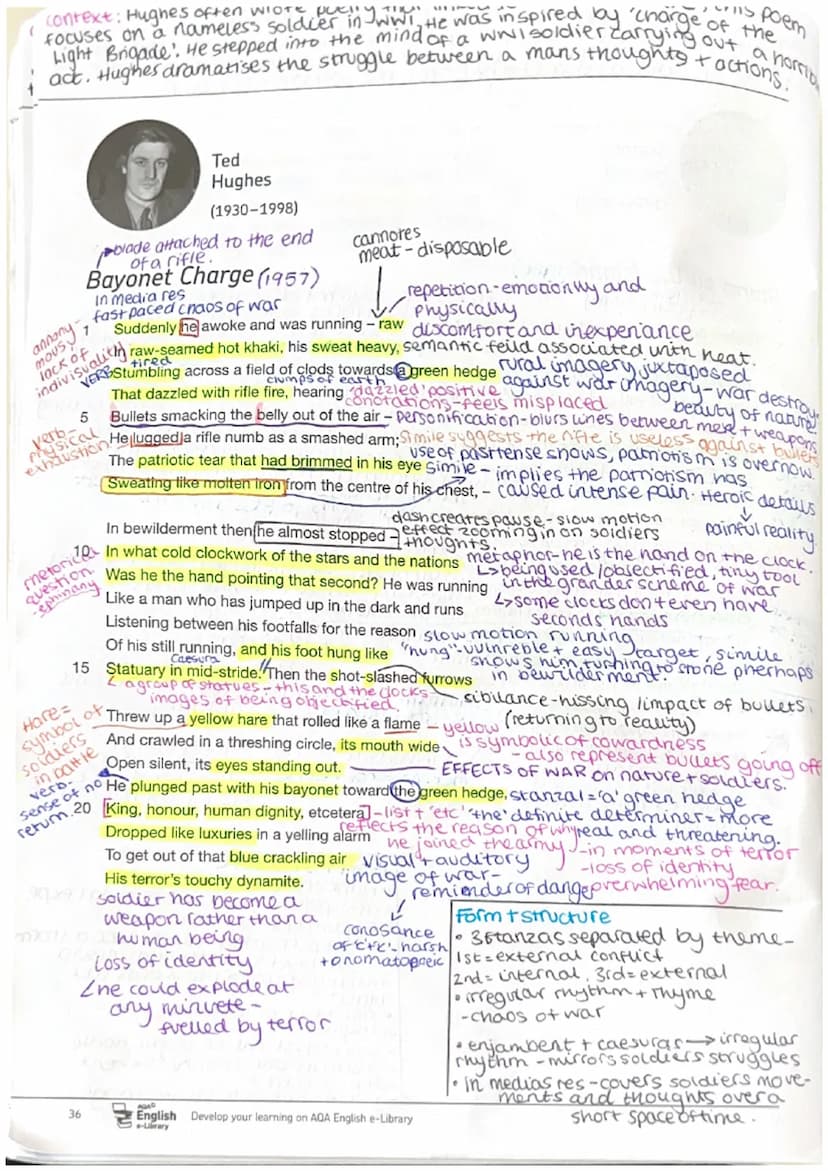 context: Hughes often wrote poetry
this poem
focuses on a nameless soldier in WW1. He was inspired by 'charge of the
Light Brigade'. He stepped into the mind of a WW1 soldier carrying out a
act. Hughes dramatises the struggle between a mans thoughts + actions.
Ted
Hughes
(1930–1998)
blade attached to the end
of a rifle.
Bayonet Charge (1957)
in media res
fast paced chaos of war
cannores
meat - disposable
repetition - emotionally and
physically
discomfort and inexperiance
annony-
mous,
lack of
indivisuality
1 Suddenly he awoke and was running – raw
In raw-seamed hot khaki, his sweat heavy,
semantic feild associated with heat.
tired
VERB
Stumbling across a field of clods towards a green hedge
clumps of earth
rural imagery juxtaposed
against war imagery - war destroys
beauty of nature
That dazzled with rifle fire, hearing
'dazzled' positive
conotations - feels misplaced
5 Bullets smacking the belly out of the air –
personification - blurs lines between men + weapons
verb-
physical
exhaustion
He lugged a rifle numb as a smashed arm;
Simile suggests the rifle is useless against bullets
use of past tense shows, patriotism is over now
The patriotic tear that had brimmed in his eye
Simile - implies the patriotism has
Sweating like molten iron from the centre of his chest, –
caused intense pain. Heroic details
painful reality
In bewilderment then he almost stopped –
dash creates pause - slow motion
effect zooming in on soldiers
thoughts
10 In what cold clockwork of the stars and the nations
metaphor - he is the hand on the clock.
being used / objectified, tiny tool
in the grander scheme of war
some clocks dont even have
seconds hands
rhetorical
question
Was he the hand pointing that second? He was running
Like a man who has jumped up in the dark and runs
Listening between his footfalls for the reason
slow motion running
Of his still running, and his foot hung like
"hung" - vulnreble + easy target, simile
shows him turning to stone pherhaps
in bewilderment.
caesura
15 Statuary in mid-stride. Then the shot-slashed furrows
a group of statues - this and the clocks
images of being objectified
sibilance - hissing / impact of bullets.
(returning to reality)
Hare =
symbol of
soldiers
in battle
Threw up a yellow hare that rolled like a flame
yellow
is symbolic of cowardness
- also represent bullets going off
And crawled in a threshing circle, its mouth wide
Open silent, its eyes standing out.
EFFECTS OF WAR on nature + soldiers.
verb-
sense of no
return.
He plunged past with his bayonet toward the green hedge,
stanza 1 = 'a' green hedge
'the' definite determiner = more
real and threatening.
20 King, honour, human dignity, etcetera
- list + 'etc'
reflects the reason of why
he joined the army
- in moments of terror
- loss of identity
overwhelming fear.
Dropped like luxuries in a yelling alarm
To get out of that blue crackling air
visual + auditory
image of war -
reminder of danger
His terror's touchy dynamite.
soldier has become a
weapon rather than a
human being
loss of identity
he could explode at
any minuete -
fuelled by terror
conosance
harsh
+ onomatopoeic
form + structure
• 3 stanzas separated by theme -
1st = external conflict
2nd = internal, 3rd = external
• irregular rhythm + rhyme
- chaos of war
• enjambent + caesuras → irregular
rhythm - mirrors soldiers struggles
• in medias res - covers soldiers move-
ments and thoughts over a
short space of time.
36
AQA
English
e-Library
Develop your learning on AQA English e-Library